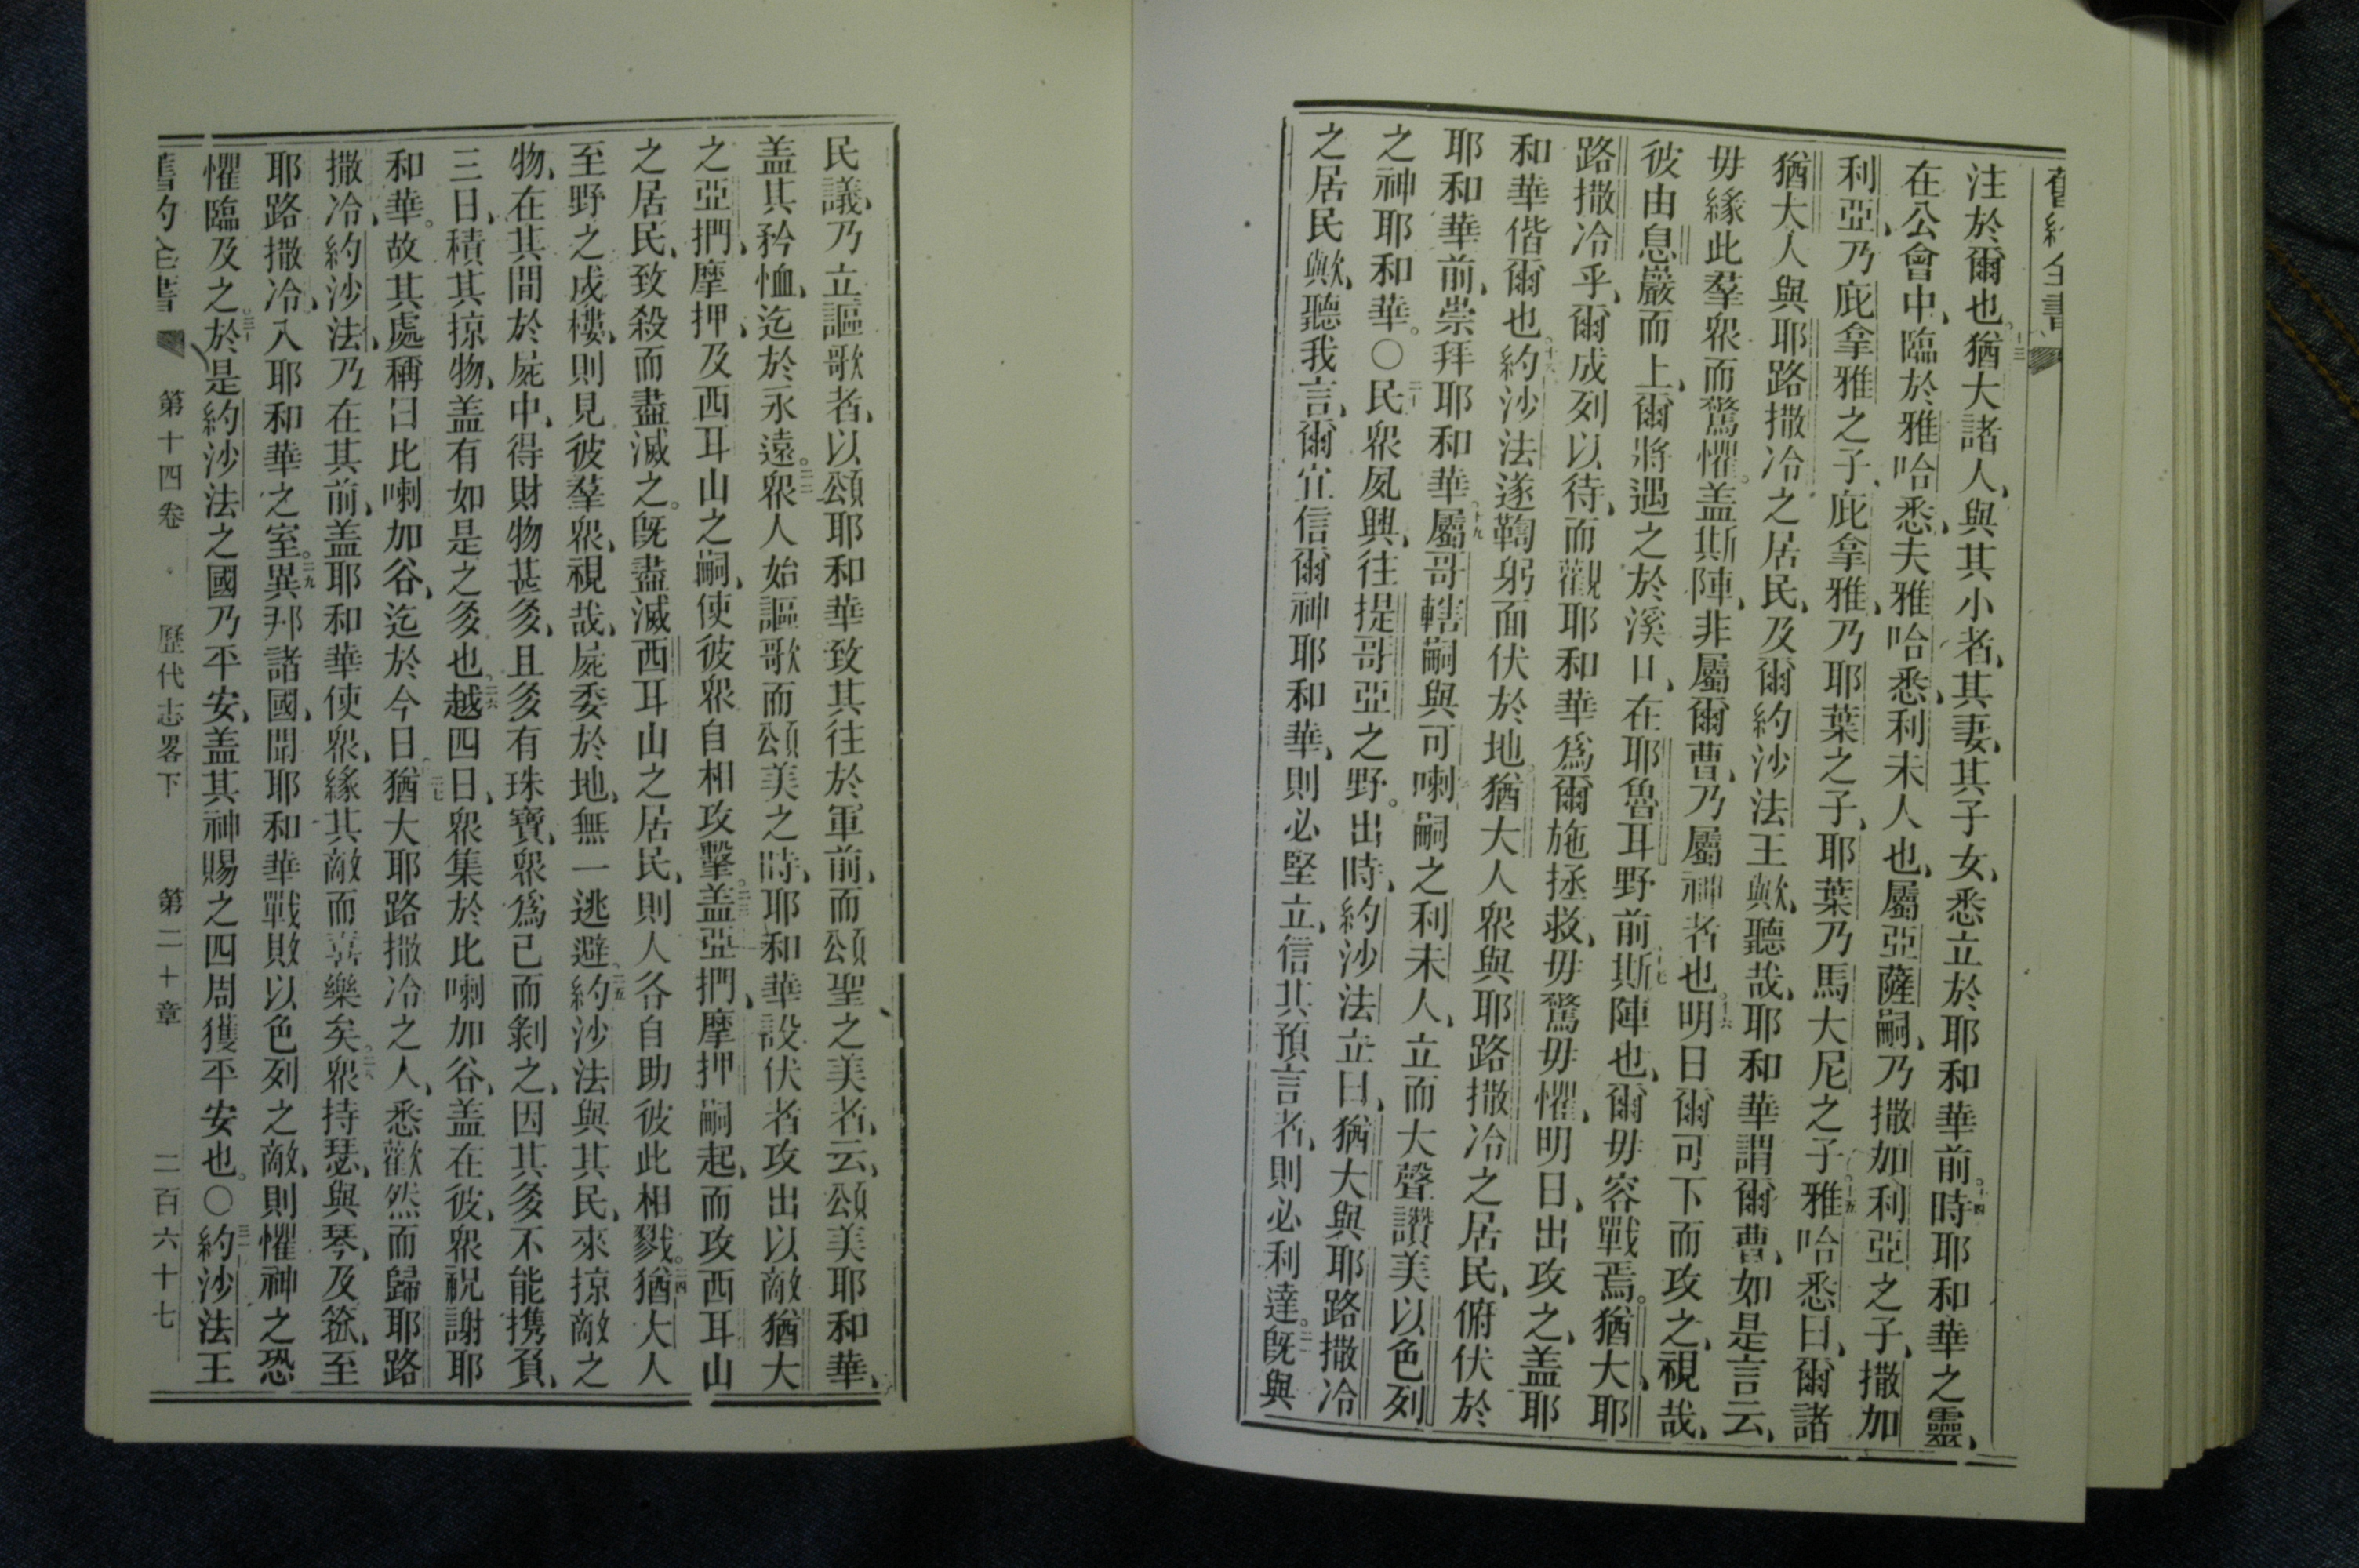 舊約全書
注於爾也。十三猶大諸人、與其小者、其妻、其子女、悉立於耶和華前。十四時耶和華之靈、
在公會中、臨於雅哈悉、夫雅哈悉、利未人也、屬亞薩嗣、乃撒加利亞之子、撒加
利亞、乃庇拿雅之子、庇拿雅、乃耶葉之子、耶葉乃馬大尼之子、十五雅哈悉曰、爾諸
猶大人與耶路撒冷之居民、及爾約沙法王歟、聽哉、耶和華謂爾曹、如是言云、
毋緣此羣眾而驚懼。盖斯陣、非屬爾曹、乃屬神者也。十六明日爾可下而攻之、視哉、
彼由息巖而上、爾將遇之於溪口、在耶魯耳野前、十七斯陣也、爾毋容戰焉。猶大、耶
路撒冷乎、爾成列以待、而觀耶和華爲爾施拯救、毋驚毋懼、明日、出攻之、盖耶
和華偕爾也。十八約沙法遂鞠躬面伏於地。猶大人眾與耶路撒冷之居民、俯伏於
耶和華前、崇拜耶和華。十九屬哥轄嗣與可喇嗣之利未人、立而大聲讚美以色列
之神耶和華。〇二十民眾夙興、往提哥亞之野。出時、約沙法立曰、猶大與耶路撒冷
之居民歟、聽我言、爾宜信爾神耶和華、則必堅立、信其預言者、則必利達。二一旣與
民議、乃立謳歌者、以頌耶和華致其往於軍前、而頌聖之美者、云、頌美耶和華、
盖其矜恤、迄於永遠。二二眾人始謳歌而頌美之時、耶和華設伏者攻出以敵猶大
之亞捫、摩押、及西耳山之嗣、使彼眾自相攻擊。二三盖亞捫、摩押嗣起、而攻西耳山
之居民、致殺而盡滅之。旣盡滅西耳山之居民、則人各自助彼此相戮。二四猶大人
至野之戍樓、則見彼羣眾、視哉、屍委於地、無一逃避。二五約沙法與其民、來掠敵之
物、在其間於屍中、得財物甚多、且多有珠寶、眾爲已而剝之、因其多不能携負、
三日、積其掠物、盖有如是之多也。二六越四日、眾集於比喇加谷、盖在彼、眾祝謝耶
和華。故其處稱曰比喇加谷、迄於今日。二七猶大耶路撒冷之人、悉歡然而歸耶路
撒冷、約沙法、乃在其前、盖耶和華使眾、緣其敵而喜樂矣。二八眾持瑟、與琴、及箛、至
耶路撒冷、入耶和華之室。二九異邦諸國、聞耶和華戰敗以色列之敵、則懼神之恐
懼臨及之。三十於是約沙法之國乃平安、盖其神賜之四周獲平安也。〇三一約沙法王
舊約全書 第十四卷 歷代志畧下 第二十章 二百六十七